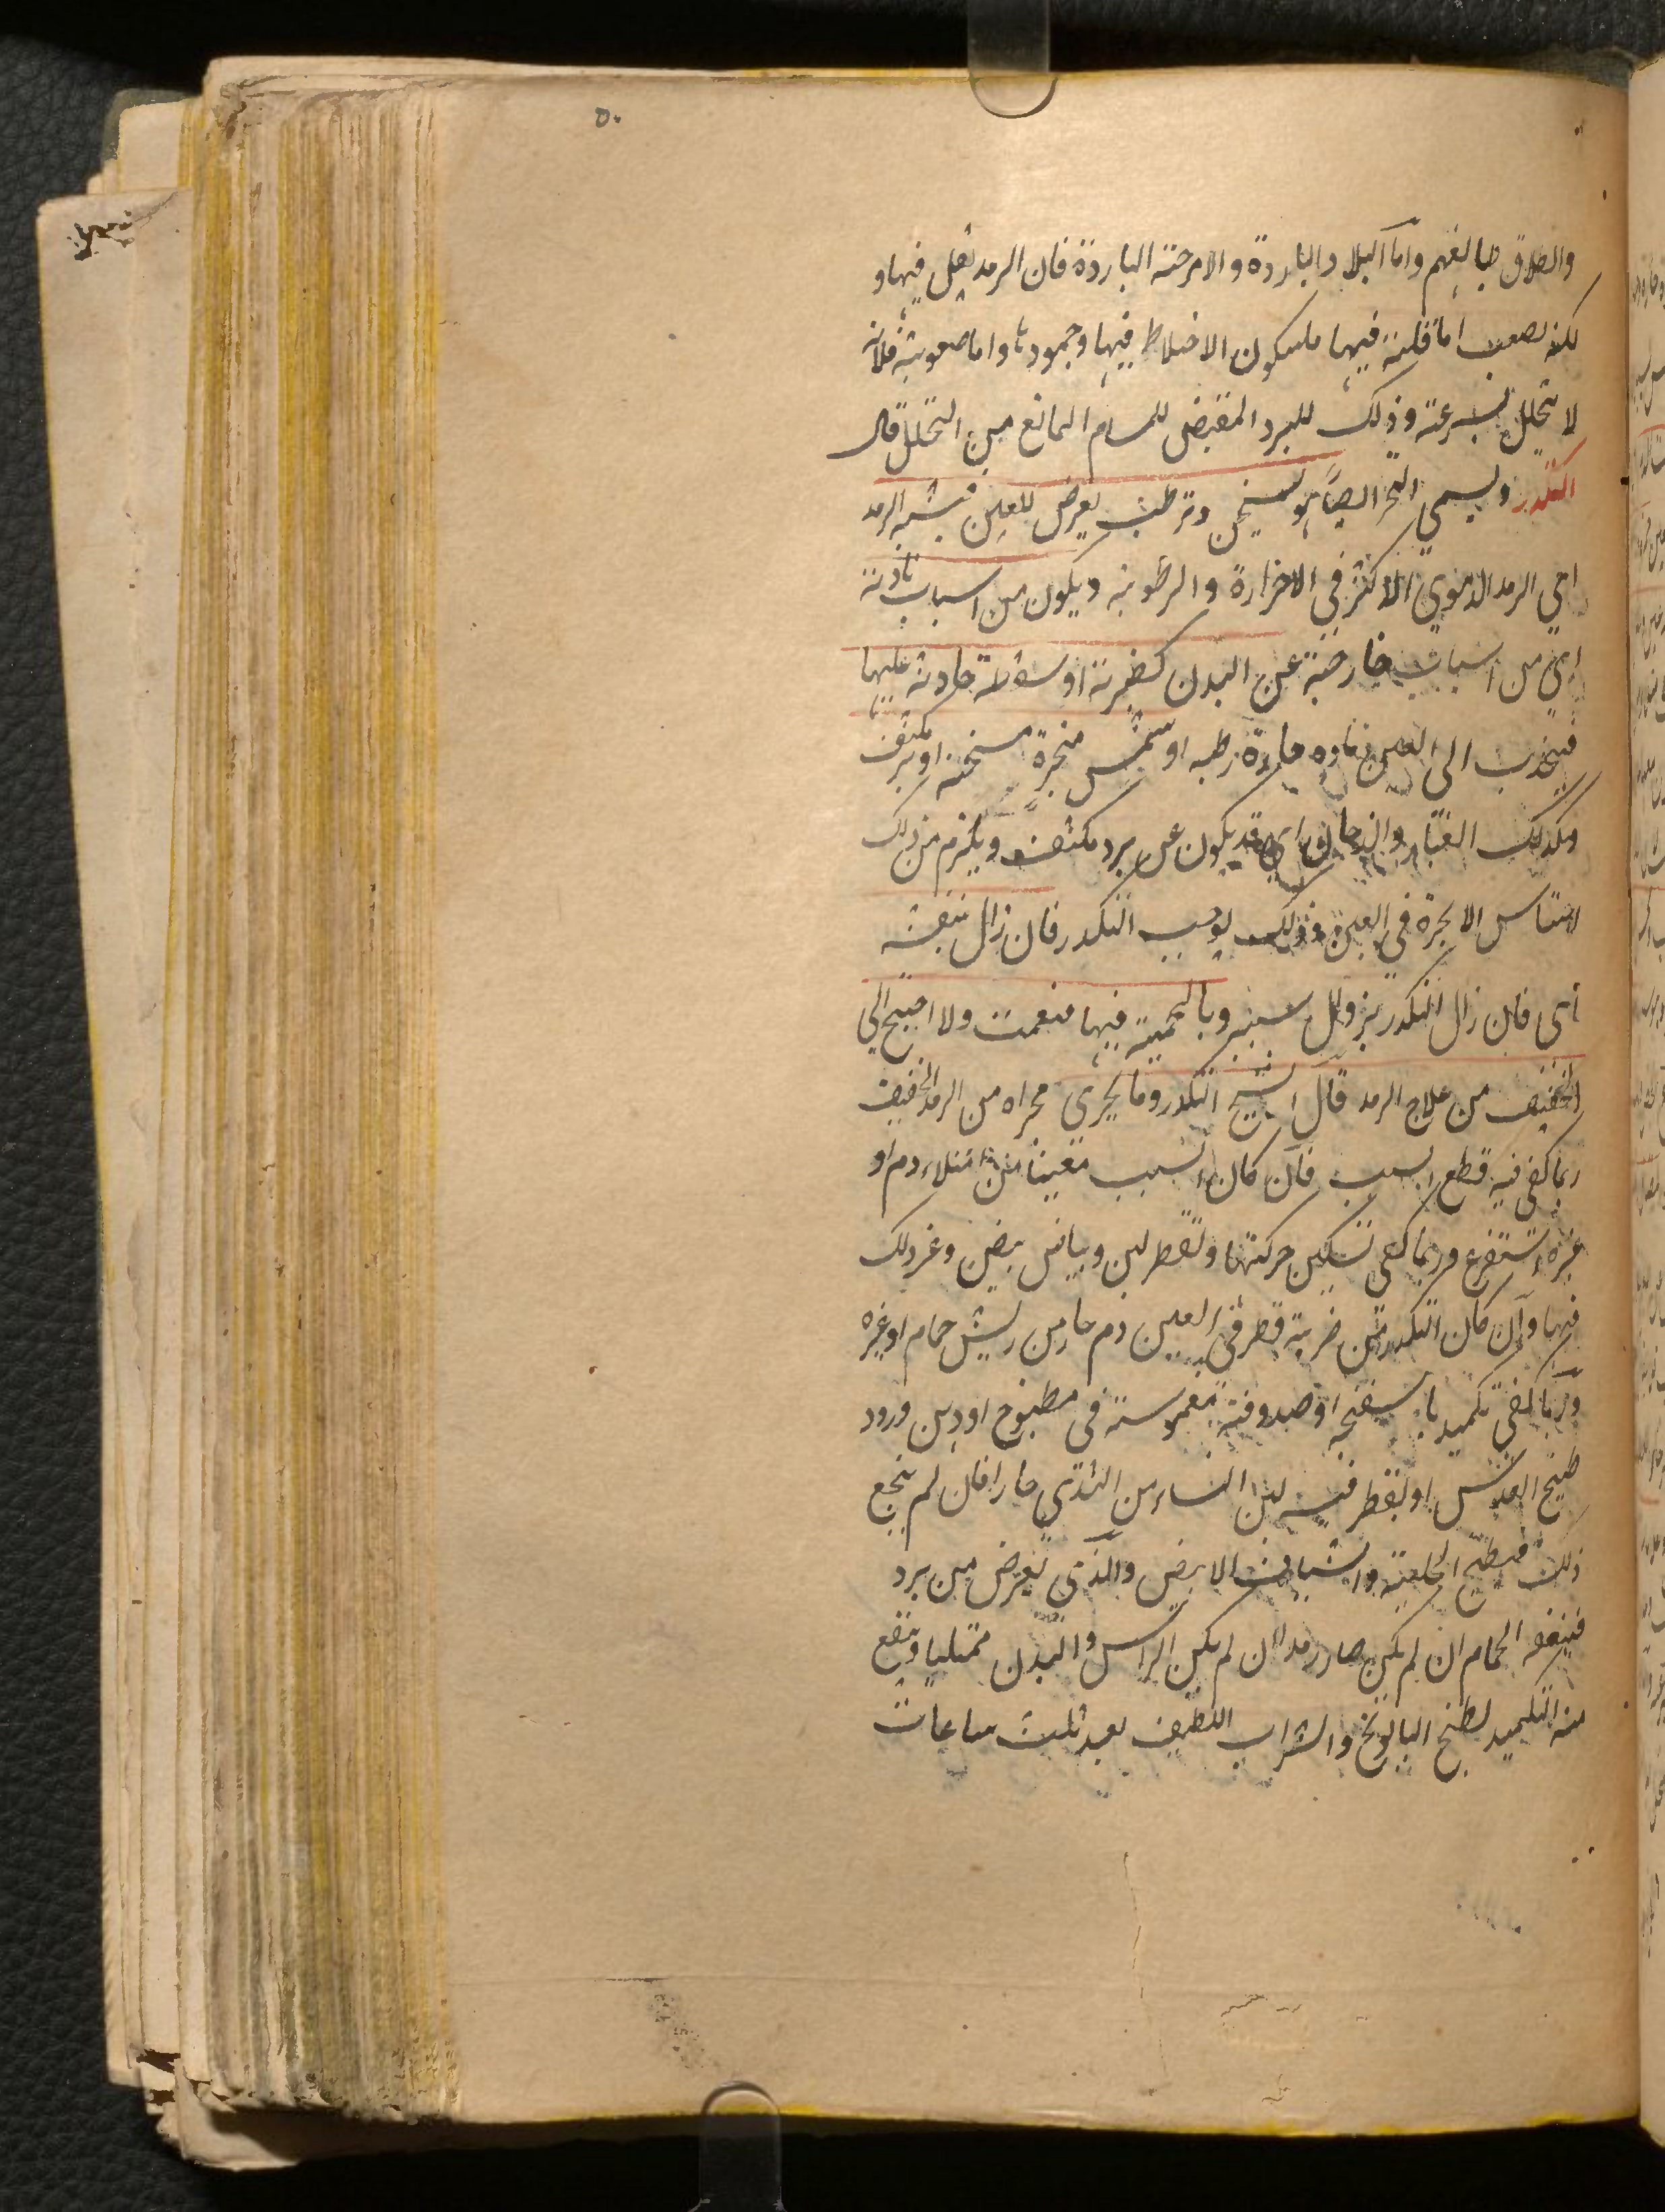 ٥٠
والطلاق طبائعهم واما البلاد الباردة والامزجة الباردة فان الرمد يقل فيها و
لكنه يصعب اما قلته فيها فلسكون الاخلاط فيها وجمودها واما صعوبته فلانه
لا يتحلل بسرعة وذلك للبرد المقبض للمسام المانع من التحلل قال
التكدر ويسمى التخثر ايضا هو تسخن وترطب يعرض للعين يشبه الرمد
اي الرمد الدموي الاكثر في الحرارة والرطوبة ويكون من اسباب بادية
اي من اسباب خارجة عن البدن كضربة او سقطة حادثة عليها
فينجذب الى العين مادة حارة رطبه او شمس مبخرة مسخنة او برد مكثف
وكذلك الغبار والدخان اي قد يكون عن برد مكثف ويلزم من ذلك
لاحتباس الابخرة في العين وذلك يوجب التكدر فان زال بنفسه
اي فان زال التكدر بزوال سببه وبالحمية فبها فنعمت والا احتيج الى
الخفيف من علاج الرمد قال الشيخ التكدر وما يجري مجراه من الرمد الخفيف
ربما كفى فيه قطع السبب فان كان السبب معينا من امتلاء دم او
غيره استفرغ وربما كفى تسكين حركتها وتقطير لبن وبياض بيض وغير ذلك
فيها وان كان التكدر من ضربة قطر في العين دم حار من ريش حمام او غيره
وربما كفى تكميد باسفنجه او صوفة مغموسة في مطبوخ او دهن ورود
طبيخ العدس او يقطر فيه لبن النساء من الثدي حارا فان لم ينجع
ذلك فطبيخ الحلبة والشياف الابيض والذي يعرض من برد
فينفعه الحمام ان لم يكن صار رمدا ان لم يكن الراس والبدن ممتليا وينفع
منه التكميد بطبيخ البابونج والشراب اللطيف بعد ثلث ساعات